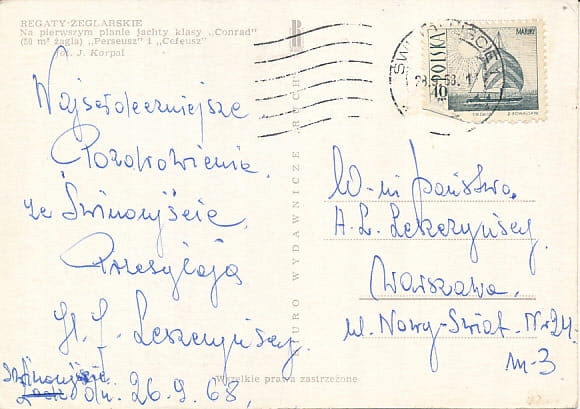 REGATY-ŻEGLARSKIE
Na pierwszym planie jachty klasy „Conrad”
(50 m² żagla) „Perseusz” i „Cefeusz”
fot. J. Korpal
Najserdeczniejsze
Pozdrowienia
ze Świnoujścia,
Przesyłają
Leszczyńscy
Świnoujście
dn. 26.9.68,
BIURO WYDAWNICZE „RUCH”
Wszelkie prawa zastrzeżone
POLSKA
10
MAZURY
W-ni Państwo,
H. L. Leszczyńscy
Warszawa,
ul. Nowy-Świat Nr 24.
m-3